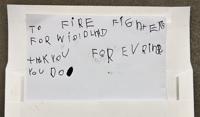 TO FIRE FIGHTERS
FOR WIDIDLND
THKYOU FOR EVRING
YOU DO